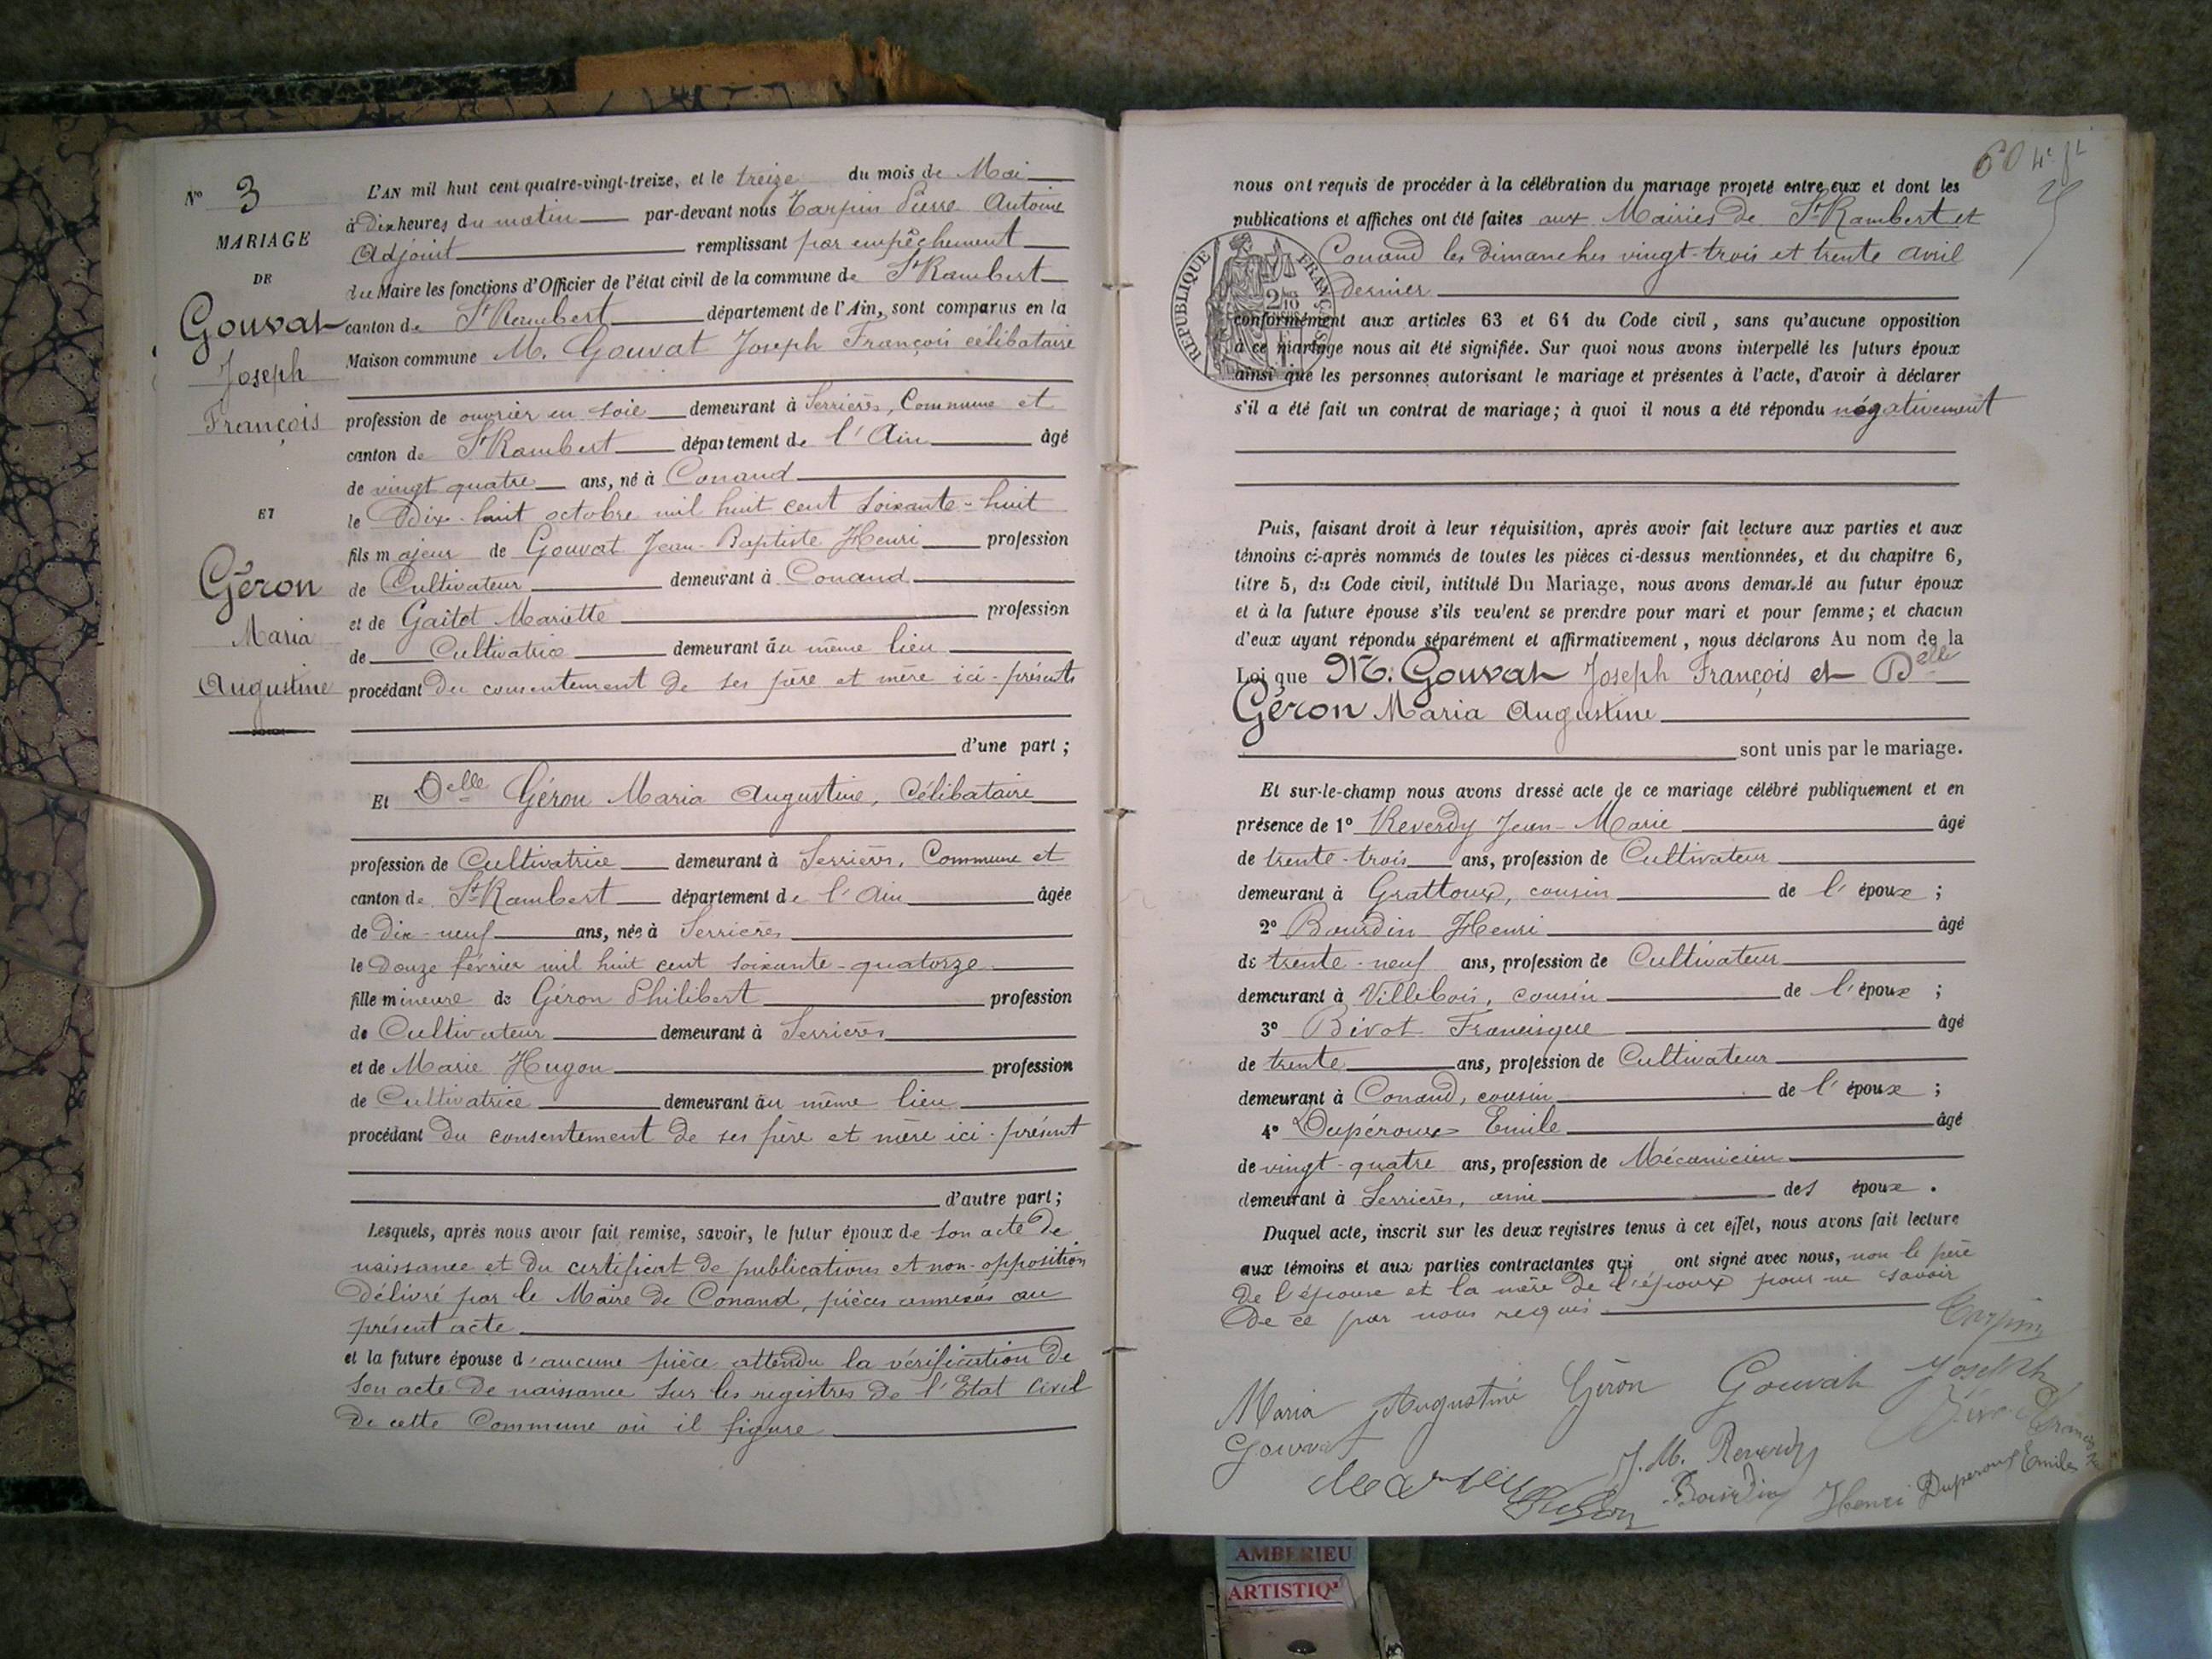 N° 3
MARIAGE
DE
Gouvat
Joseph
François
ET
Géron
Maria
Augustine
L'AN mil huit cent quatre-vingt-treize, et le treize du mois de Mai
à Dix heures du matin par-devant nous Tarpin Pierre Antoine
Adjoint remplissant par empêchement
du Maire les fonctions d'Officier de l'état civil de la commune de St Rambert
canton de St Rambert département de l'Ain, sont comparus en la
Maison commune M. Gouvat Joseph François célibataire
profession de ouvrier en soie demeurant à Serrières, Commune et
canton de St Rambert département de l'Ain âgé
de vingt quatre ans, né à Conand
le Dix-huit octobre mil huit cent soixante-huit
fils majeur de Gouvat Jean-Baptiste Henri profession
de Cultivateur demeurant à Conand
et de Gaitet Mariette profession
de Cultivatrice demeurant au même lieu
procédant du consentement de ses père et mère ici-présents
d'une part ;
Et Delle Géron Maria Augustine, Célibataire
profession de Cultivatrice demeurant à Serrières, Commune et
canton de St Rambert département de l'Ain âgée
de dix-neuf ans, née à Serrières
le Douze février mil huit cent soixante-quatorze
fille mineure de Géron Philibert profession
de Cultivateur demeurant à Serrières
et de Marie Hugon profession
de Cultivatrice demeurant au même lieu
procédant du consentement de ses père et mère ici-présent
d'autre part ;
Lesquels, après nous avoir fait remise, savoir, le futur époux de son acte de
naissance et du certificat de publications et non-opposition
délivré par le Maire de Conand, pièces annexés au
présent acte
et la future épouse d'aucune pièce attendu la vérification de
son acte de naissance sur les registres de l'Etat Civil
de cette Commune où il figure
60 4e ft
nous ont requis de procéder à la célébration du mariage projeté entre eux et dont les
publications et affiches ont été faites aux Mairies de St Rambert et
Conand les dimanches vingt-trois et trente avril
dernier
REPUBLIQUE FRANÇAISE
conformément aux articles 63 et 64 du Code civil, sans qu'aucune opposition
à ce mariage nous ait été signifiée. Sur quoi nous avons interpellé les futurs époux
ainsi que les personnes autorisant le mariage et présentes à l'acte, d'avoir à déclarer
s'il a été fait un contrat de mariage ; à quoi il nous a été répondu négativement
Puis, faisant droit à leur réquisition, après avoir fait lecture aux parties et aux
témoins ci-après nommés de toutes les pièces ci-dessus mentionnées, et du chapitre 6,
titre 5, du Code civil, intitulé Du Mariage, nous avons demandé au futur époux
et à la future épouse s'ils veulent se prendre pour mari et pour femme ; et chacun
d'eux ayant répondu séparément et affirmativement, nous déclarons Au nom de la
Loi que M. Gouvat Joseph François et Delle
Géron Maria Augustine
sont unis par le mariage.
Et sur-le-champ nous avons dressé acte de ce mariage célébré publiquement et en
présence de 1° Reverdy Jean-Marie âgé
de trente-trois ans, profession de Cultivateur
demeurant à Grattoux, cousin de l'époux ;
2° Bourdin Henri âgé
de trente-neuf ans, profession de Cultivateur
demeurant à Villebois, cousin de l'époux ;
3° Bivot Francisque âgé
de trente ans, profession de Cultivateur
demeurant à Conand, cousin de l'époux ;
4° Dupéroux Emile âgé
de vingt-quatre ans, profession de Mécanicien
demeurant à Serrières, ami des époux.
Duquel acte, inscrit sur les deux registres tenus à cet effet, nous avons fait lecture
aux témoins et aux parties contractantes qui ont signé avec nous, non le père
de l'épouse et la mère de l'époux pour ne savoir
de ce par nous requis
Tarpin
Maria Augustine Géron Gouvat Joseph
Gouvat
J. M. Reverdy
Bourdin Henri Duperoux Emile
AMBERIEU
ARTISTIQ